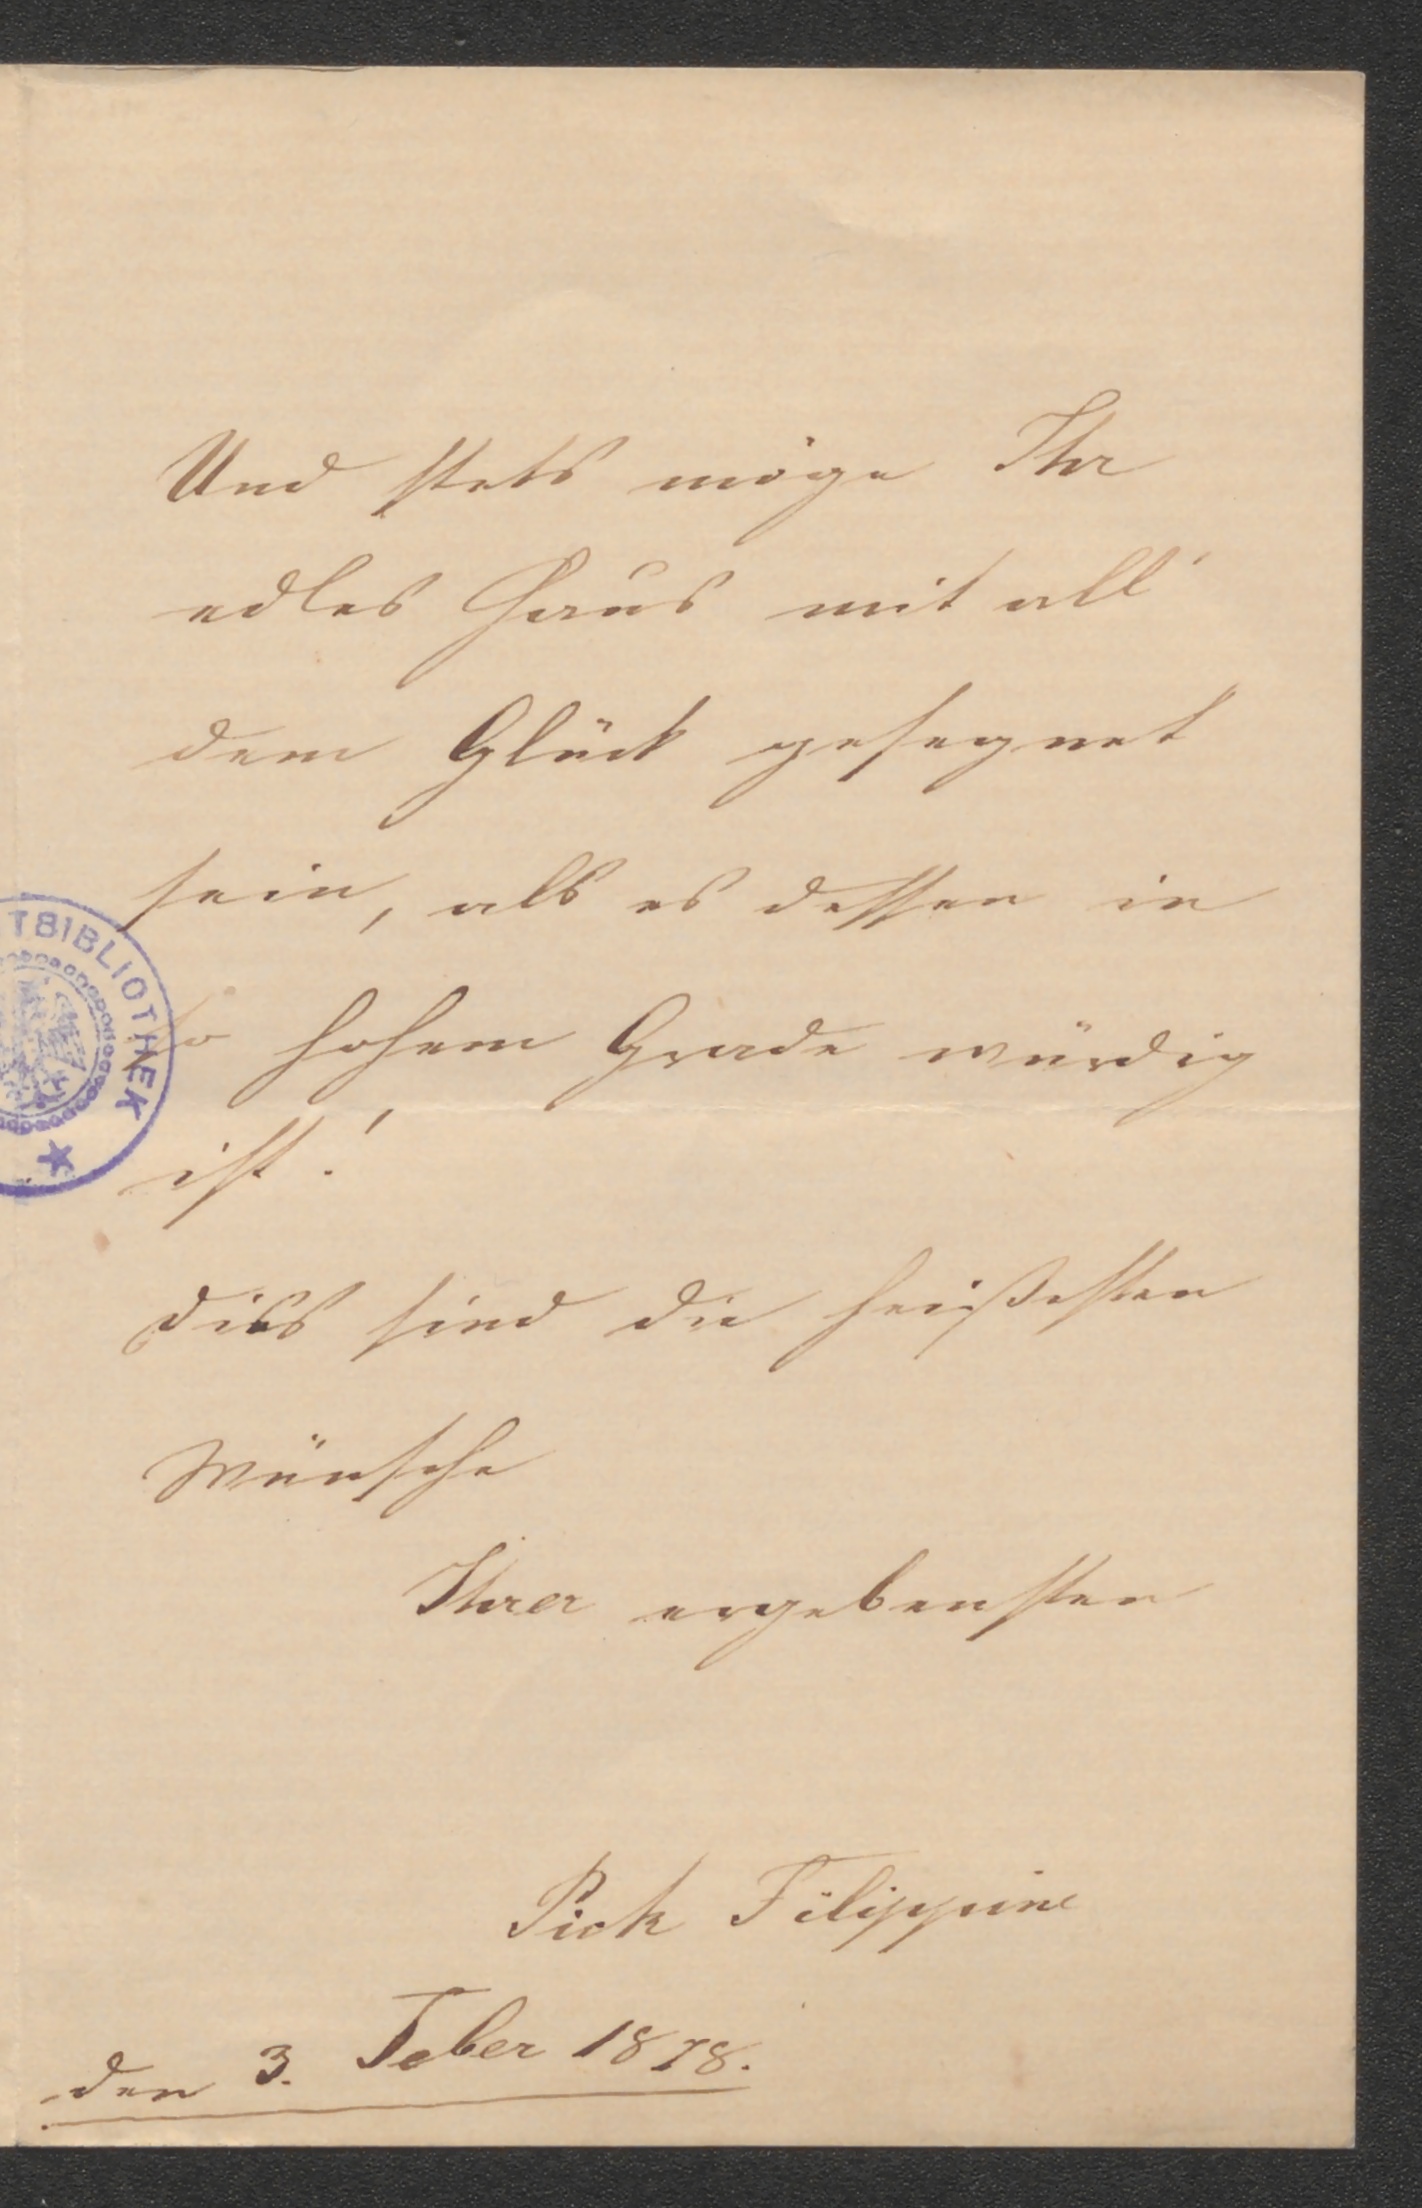 Und stets möge Ihr
edles Haus mit all'
dem Glück gesegnet
sein, als es dessen in
so hohem Grade würdig
ist!
Dies sind die heißesten
Wünsche
Ihrer ergebensten
Pick Filippine
den 3. Feber 1878.
TBIBLIOTHEK